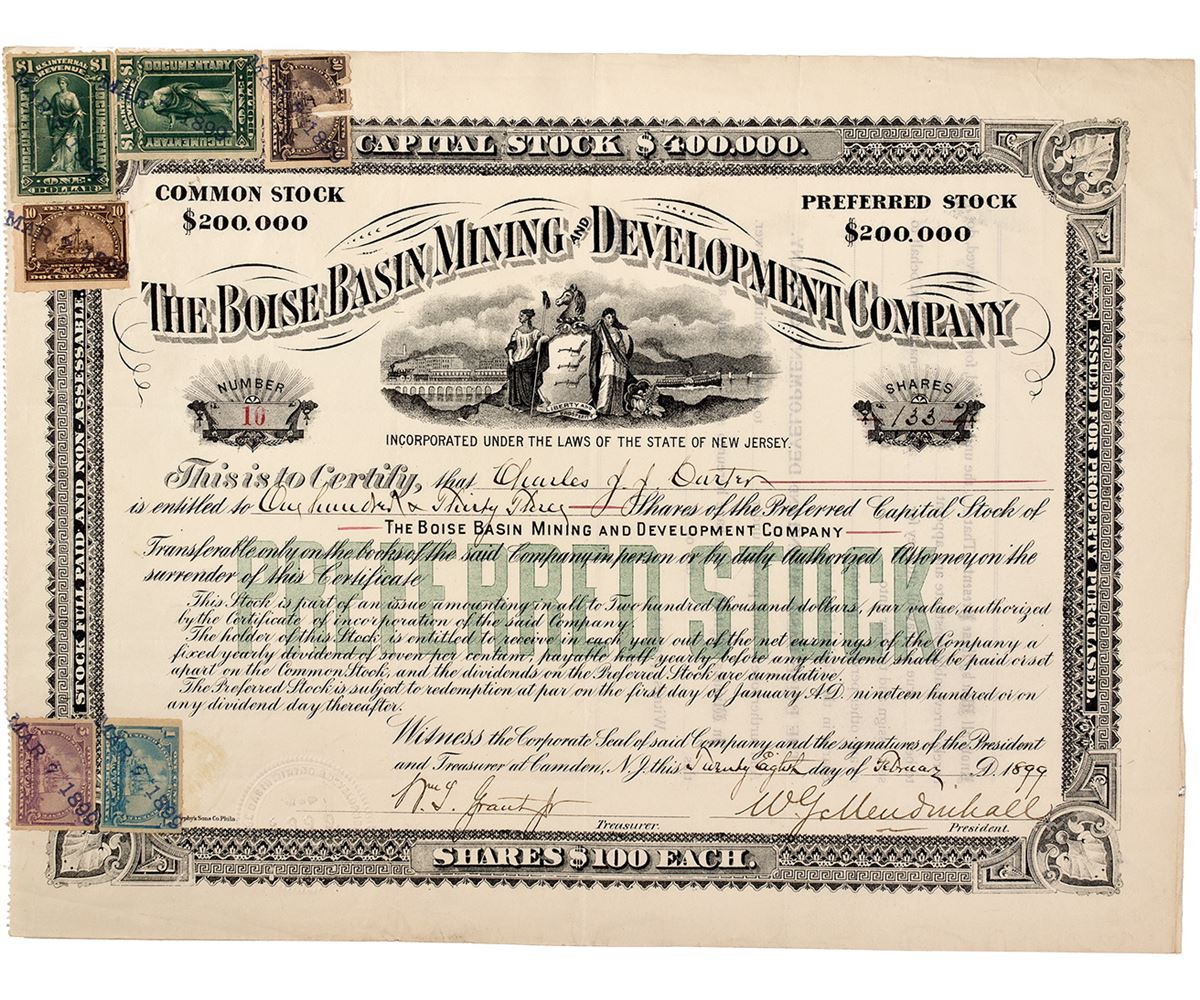 $1 U.S. INTERNAL REVENUE $1
DOCUMENTARY
ONE DOLLAR
MAR 1899
$1 DOCUMENTARY
ONE DOLLAR
MAR 1899
10 TEN CENTS 10
DOCUMENTARY
CAPITAL STOCK $400.000.
COMMON STOCK
$200.000
PREFERRED STOCK
$200.000
THE BOISE BASIN MINING AND DEVELOPMENT COMPANY
NUMBER
10
SHARES
133
LIBERTY AND
INCORPORATED UNDER THE LAWS OF THE STATE OF NEW JERSEY.
STOCK FULL PAID AND NON-ASSESSABLE
ISSUED FOR PROPERTY PURCHASED.
This is to Certify, that Charles J. J. Carter
is entitled to One hundred & Thirty Three Shares of the Preferred Capital Stock of
THE BOISE BASIN MINING AND DEVELOPMENT COMPANY
Transferable only on the books of the said Company in person or by duly Authorized Attorney on the
surrender of this Certificate
PREFERRED STOCK
This Stock is part of an issue amounting in all to Two hundred thousand dollars, par value, authorized
by the Certificate of incorporation of the said Company
The holder of this Stock is entitled to receive in each year out of the net earnings of the Company a
fixed yearly dividend of seven per centum, payable half-yearly before any dividend shall be paid or set
apart on the Common Stock, and the dividends on the Preferred Stock are cumulative.
The Preferred Stock is subject to redemption at par on the first day of January A.D. nineteen hundred or on
any dividend day thereafter.
Witness the Corporate Seal of said Company and the signatures of the President
and Treasurer at Camden, N.J. this Twenty Eighth day of February D. 1899
Wm S. Grant Jr
Treasurer.
W G Mendinhall
President.
MAR 1899
MAR 1899
phy's Sons Co. Phila.
SHARES $100 EACH.